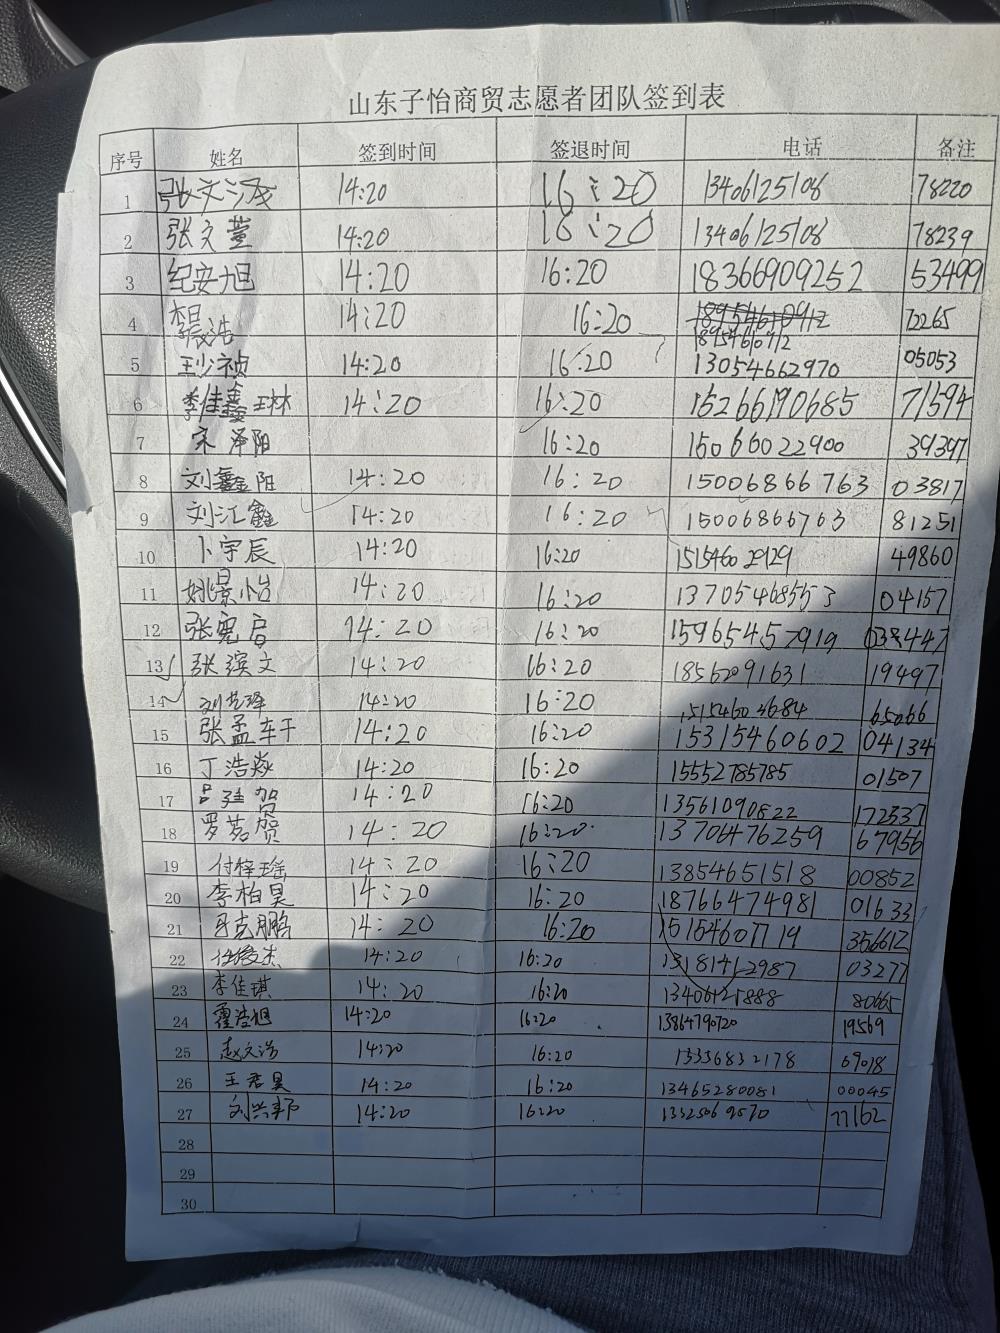 山东子怡商贸志愿者团队签到表
序号 姓名 签到时间 签退时间 电话 备注
1 张文 14:20 16:20 13406125108 78220
2 张文萱 14:20 16:20 13406125108 78239
3 纪安旭 14:20 16:20 18366909252 53499
4 浩 14:20 16:20 18954610912 72265
18954610912
5 王少祯 14:20 16:20 13054662970 05053
6 李佳鑫 王林 14:20 16:20 15266190685 71594
7 宋泽阳 16:20 15066022900 39397
8 刘鑫阳 14:20 16:20 15006866763 03817
9 刘江鑫 14:20 16:20 15006866763 81251
10 卜宇辰 14:20 16:20 15154602929 49860
11 姚景怡 14:20 16:20 13705468553 04157
12 张宪 14:20 16:20 15965457919 038447
13 张滨文 14:20 16:20 18562091631 19497
14 刘艺泽 14:20 16:20 15154603684 65066
15 张孟轩 14:20 16:20 15315460602 04134
16 丁浩焱 14:20 16:20 15552785785 01507
17 吕 贺 14:20 16:20 13561090822 172537
18 罗茗贺 14:20 16:20 13706476259 67956
19 付梓瑶 14:20 16:20 13854651518 00852
20 李柏昊 14:20 16:20 18766474981 01633
21 克鹏 14:20 16:20 15154607719 356612
22 任俊杰 14:20 16:20 13181412987 03277
23 李佳琪 14:20 16:20 13406125888 80665
24 霍浩旭 14:20 16:20 13864790720 19569
25 赵文浩 14:20 16:20 13336832178 69018
26 王君昊 14:20 16:20 13465280081 00045
27 刘兴邦 14:20 16:20 13325069570 77162
28
29
30